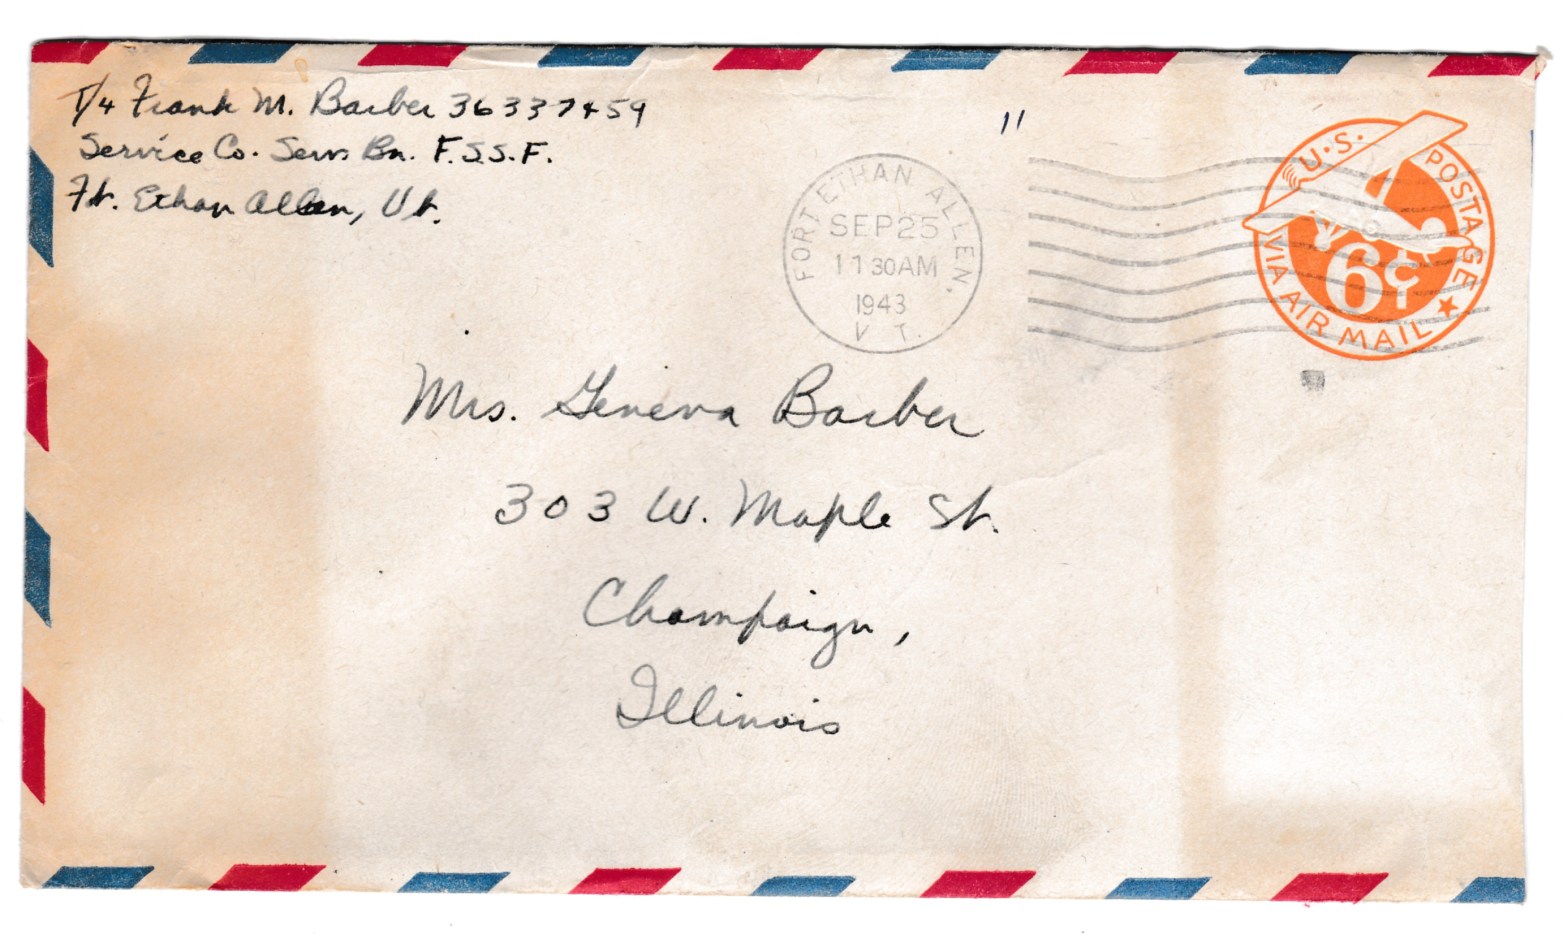 T/4 Frank M. Barber 36337459
Service Co. Serv. Bn. F.S.S.F.
Ft. Ethan Allen, Vt.
"
FORT ETHAN ALLEN,
SEP 25
11 30 AM
1943
VT.
U.S. POSTAGE
6¢
VIA AIR MAIL
Mrs. Geneva Barber
303 W. Maple St.
Champaign,
Illinois